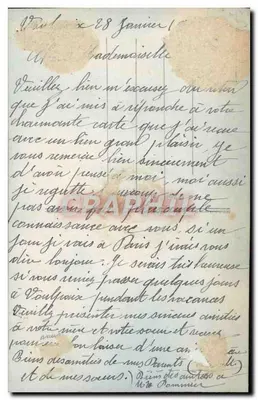 28 Janvier
Mademoiselle
Veuillez bien m'excuser du retard
que j'ai mis à répondre à votre
charmante carte que j'ai reçue
avec un bien grand plaisir je
vous remercie bien sincerement
d'avoir pensé moi, moi aussi
je regrette de ne
pas fait
connaissance avec vous, si un
jour je vais à Paris j'irais vous
dire bonjour. Je serais très heureuse
si vous veniez passer quelques jours
à pendant les vacances
Veuillez présenter mes sincères amitiés
à votre mère et votre soeur et recevez
pour un bon baiser d'une amie
Biens des amitiés de mes Parents
et de mes soeurs. Biens des amitiés à
CPAPHILE